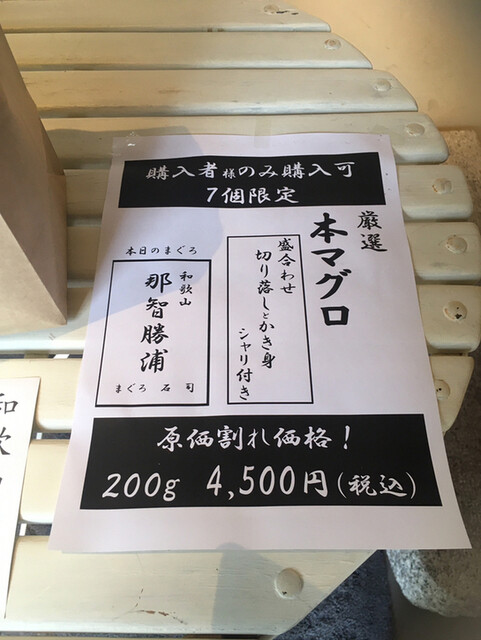 購入者様のみ購入可
7個限定
厳選
本マグロ
盛合わせ
切り落しとかき身
シャリ付き
本日のまぐろ
和歌山
那智勝浦
まぐろ石司
原価割れ価格!
200g 4,500円(税込)